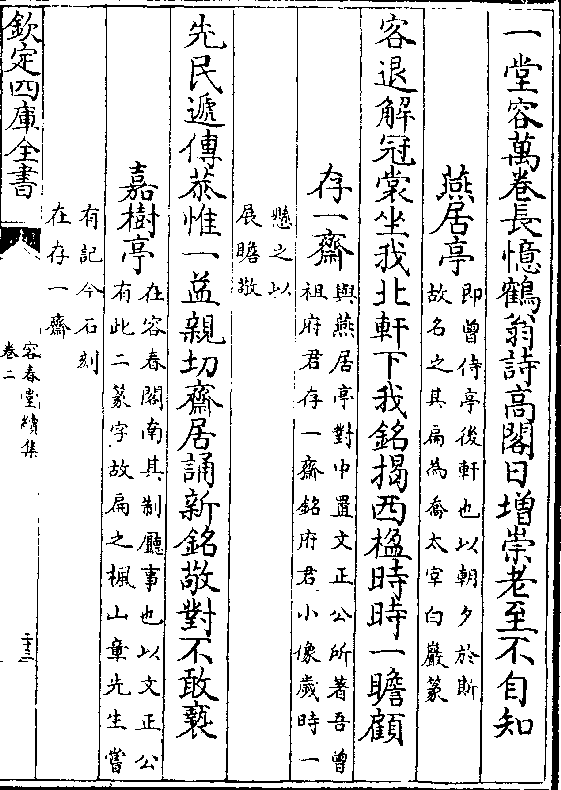 一堂容萬卷長憶鶴翁詩高閣日增崇老至不自知
燕居亭
即曾侍亭後軒也以朝夕於斯
故名之其扁為喬太宰白巖篆
容退解冠裳坐我北軒下我銘揭西楹時時一瞻顧
存一齋
與燕居亭對中置文正公所著吾曾
祖府君存一齋銘府君小像歲時一
懸之以
展瞻敬
先民遞傳恭惟一益親切齋居誦新銘敬對不敢褻
嘉樹亭
在容春閣南其制廳事也以文正公
有此二篆字故扁之楓山章先生嘗
有記今石刻
在存一齋
欽定四庫全書
容春堂續集
卷二
二十三